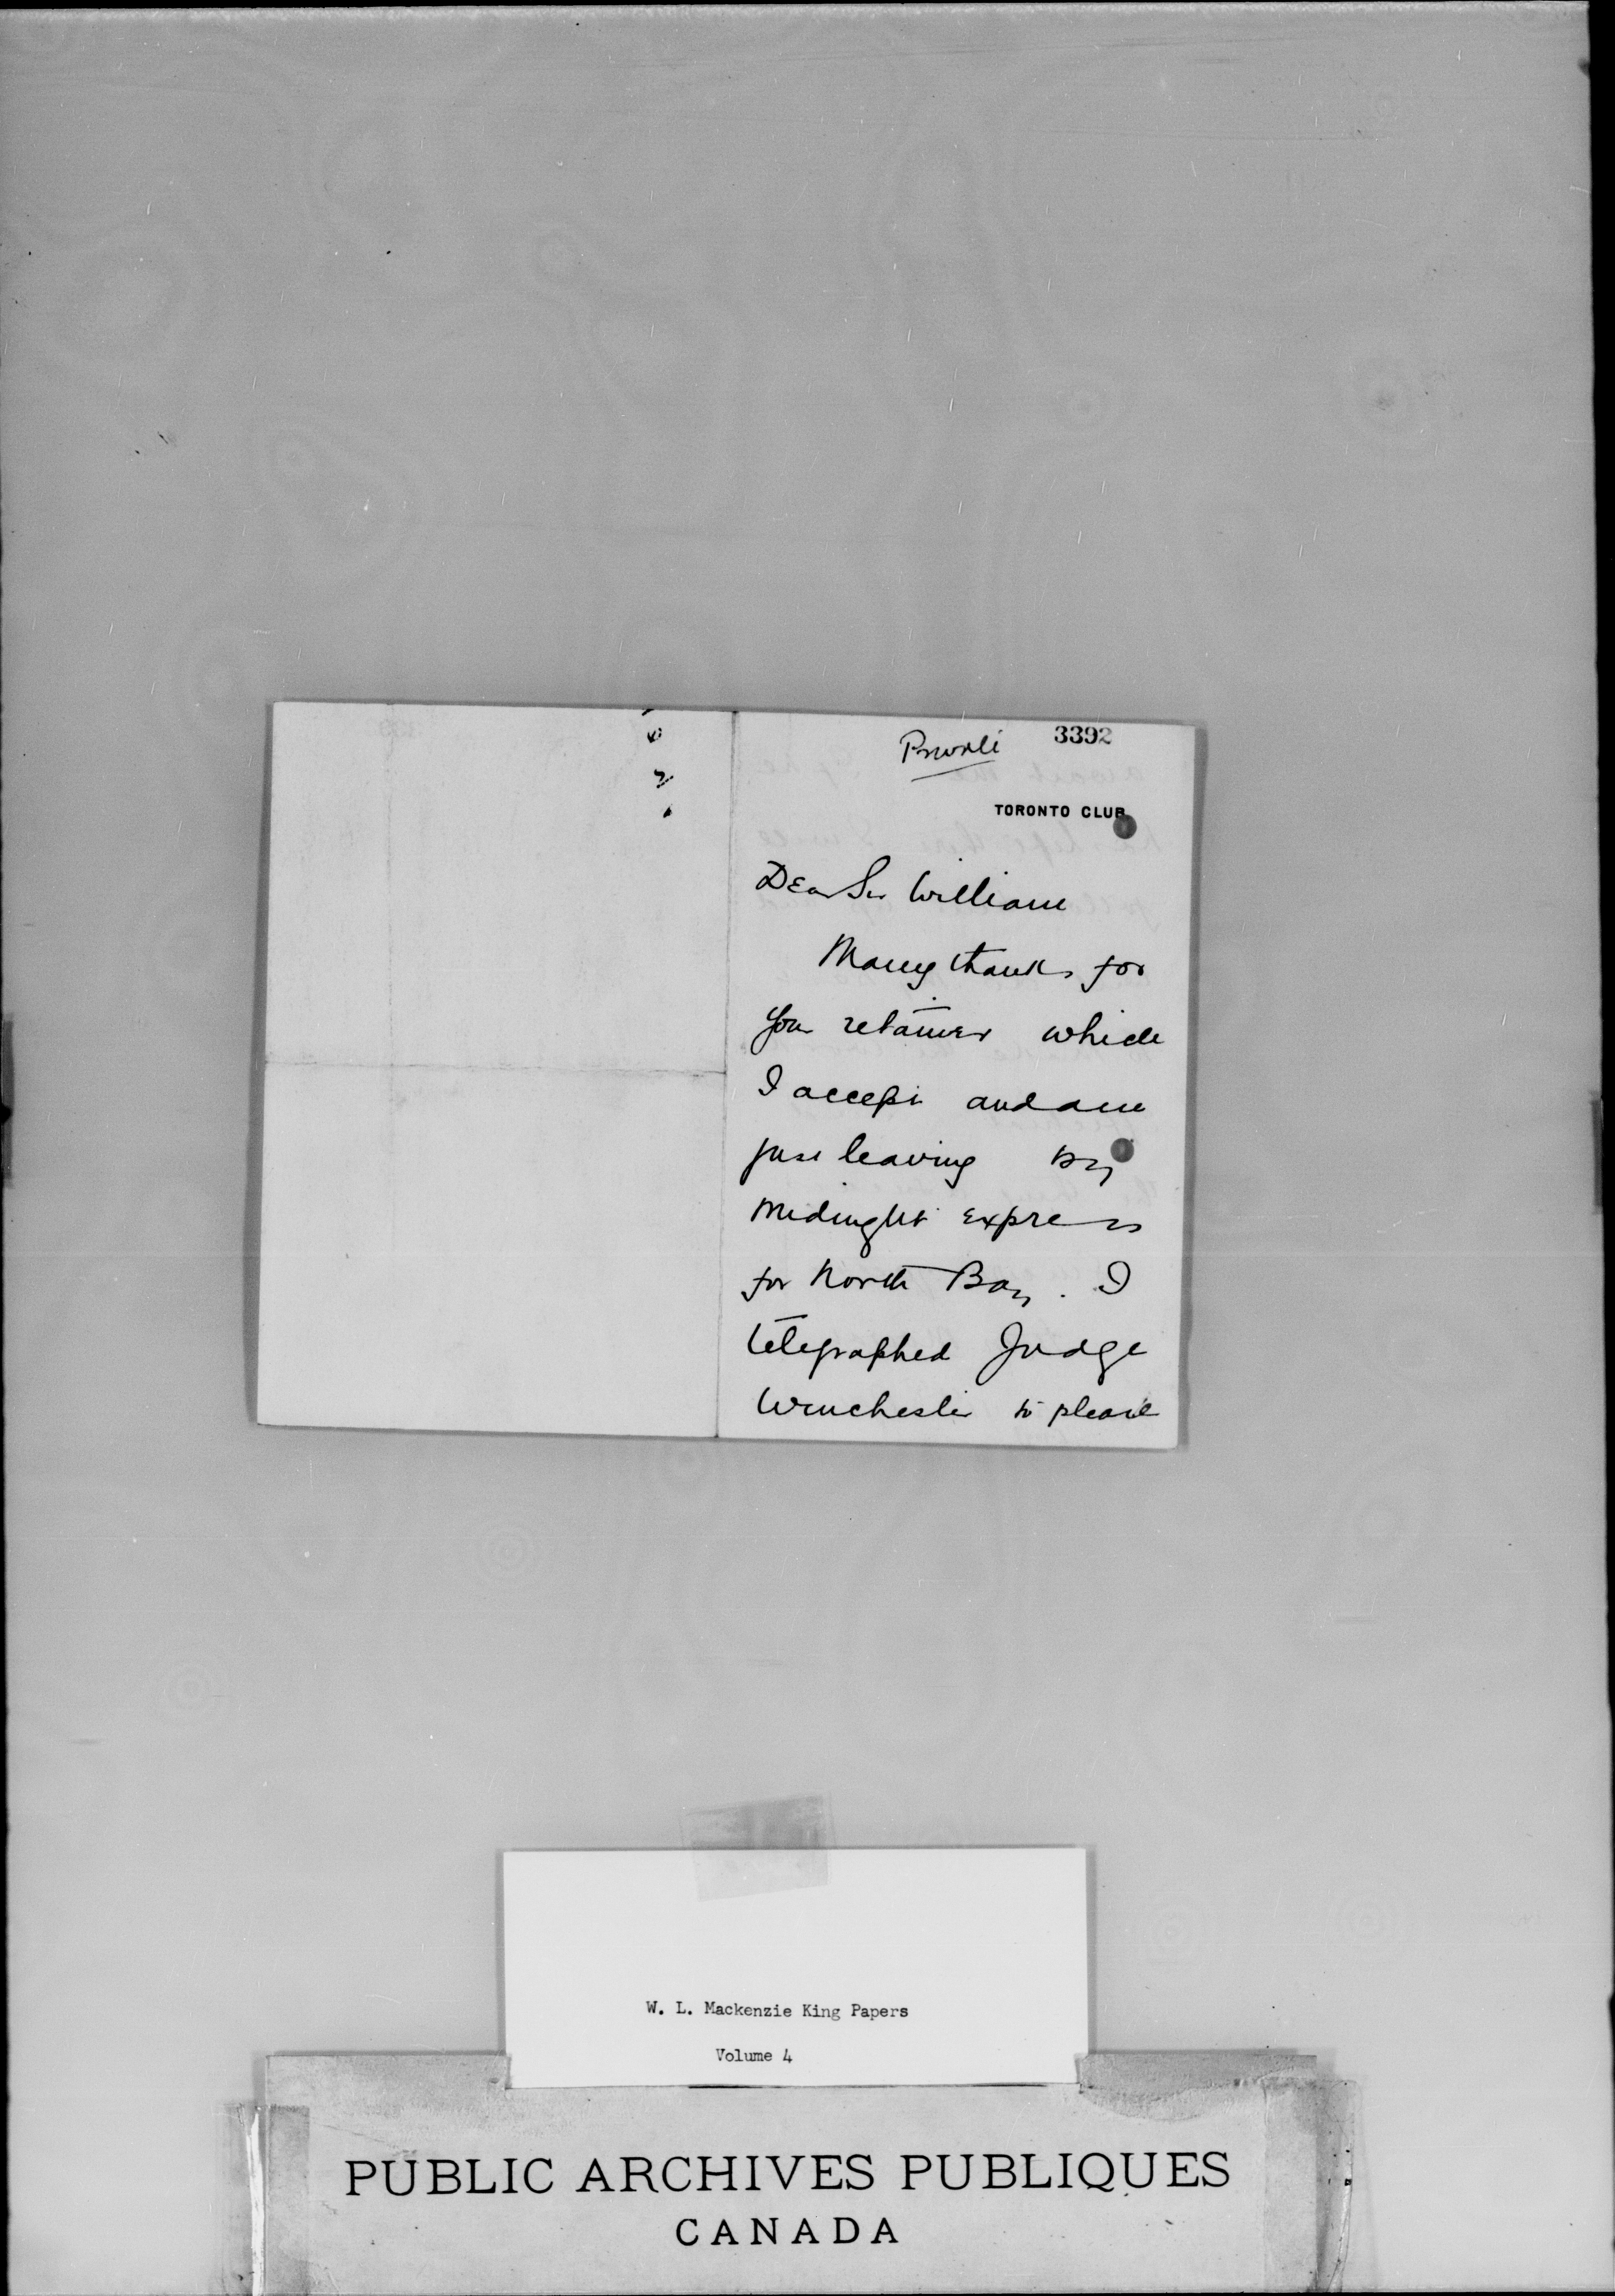 Private 3392
TORONTO CLUB
Dear Sir William
Many thanks for
your retainer which
I accept and am
just leaving by
midnight express
for North Bay. I
telegraphed Judge
Winchester to please
W. L. Mackenzie King Papers
Volume 4
PUBLIC ARCHIVES PUBLIQUES
CANADA